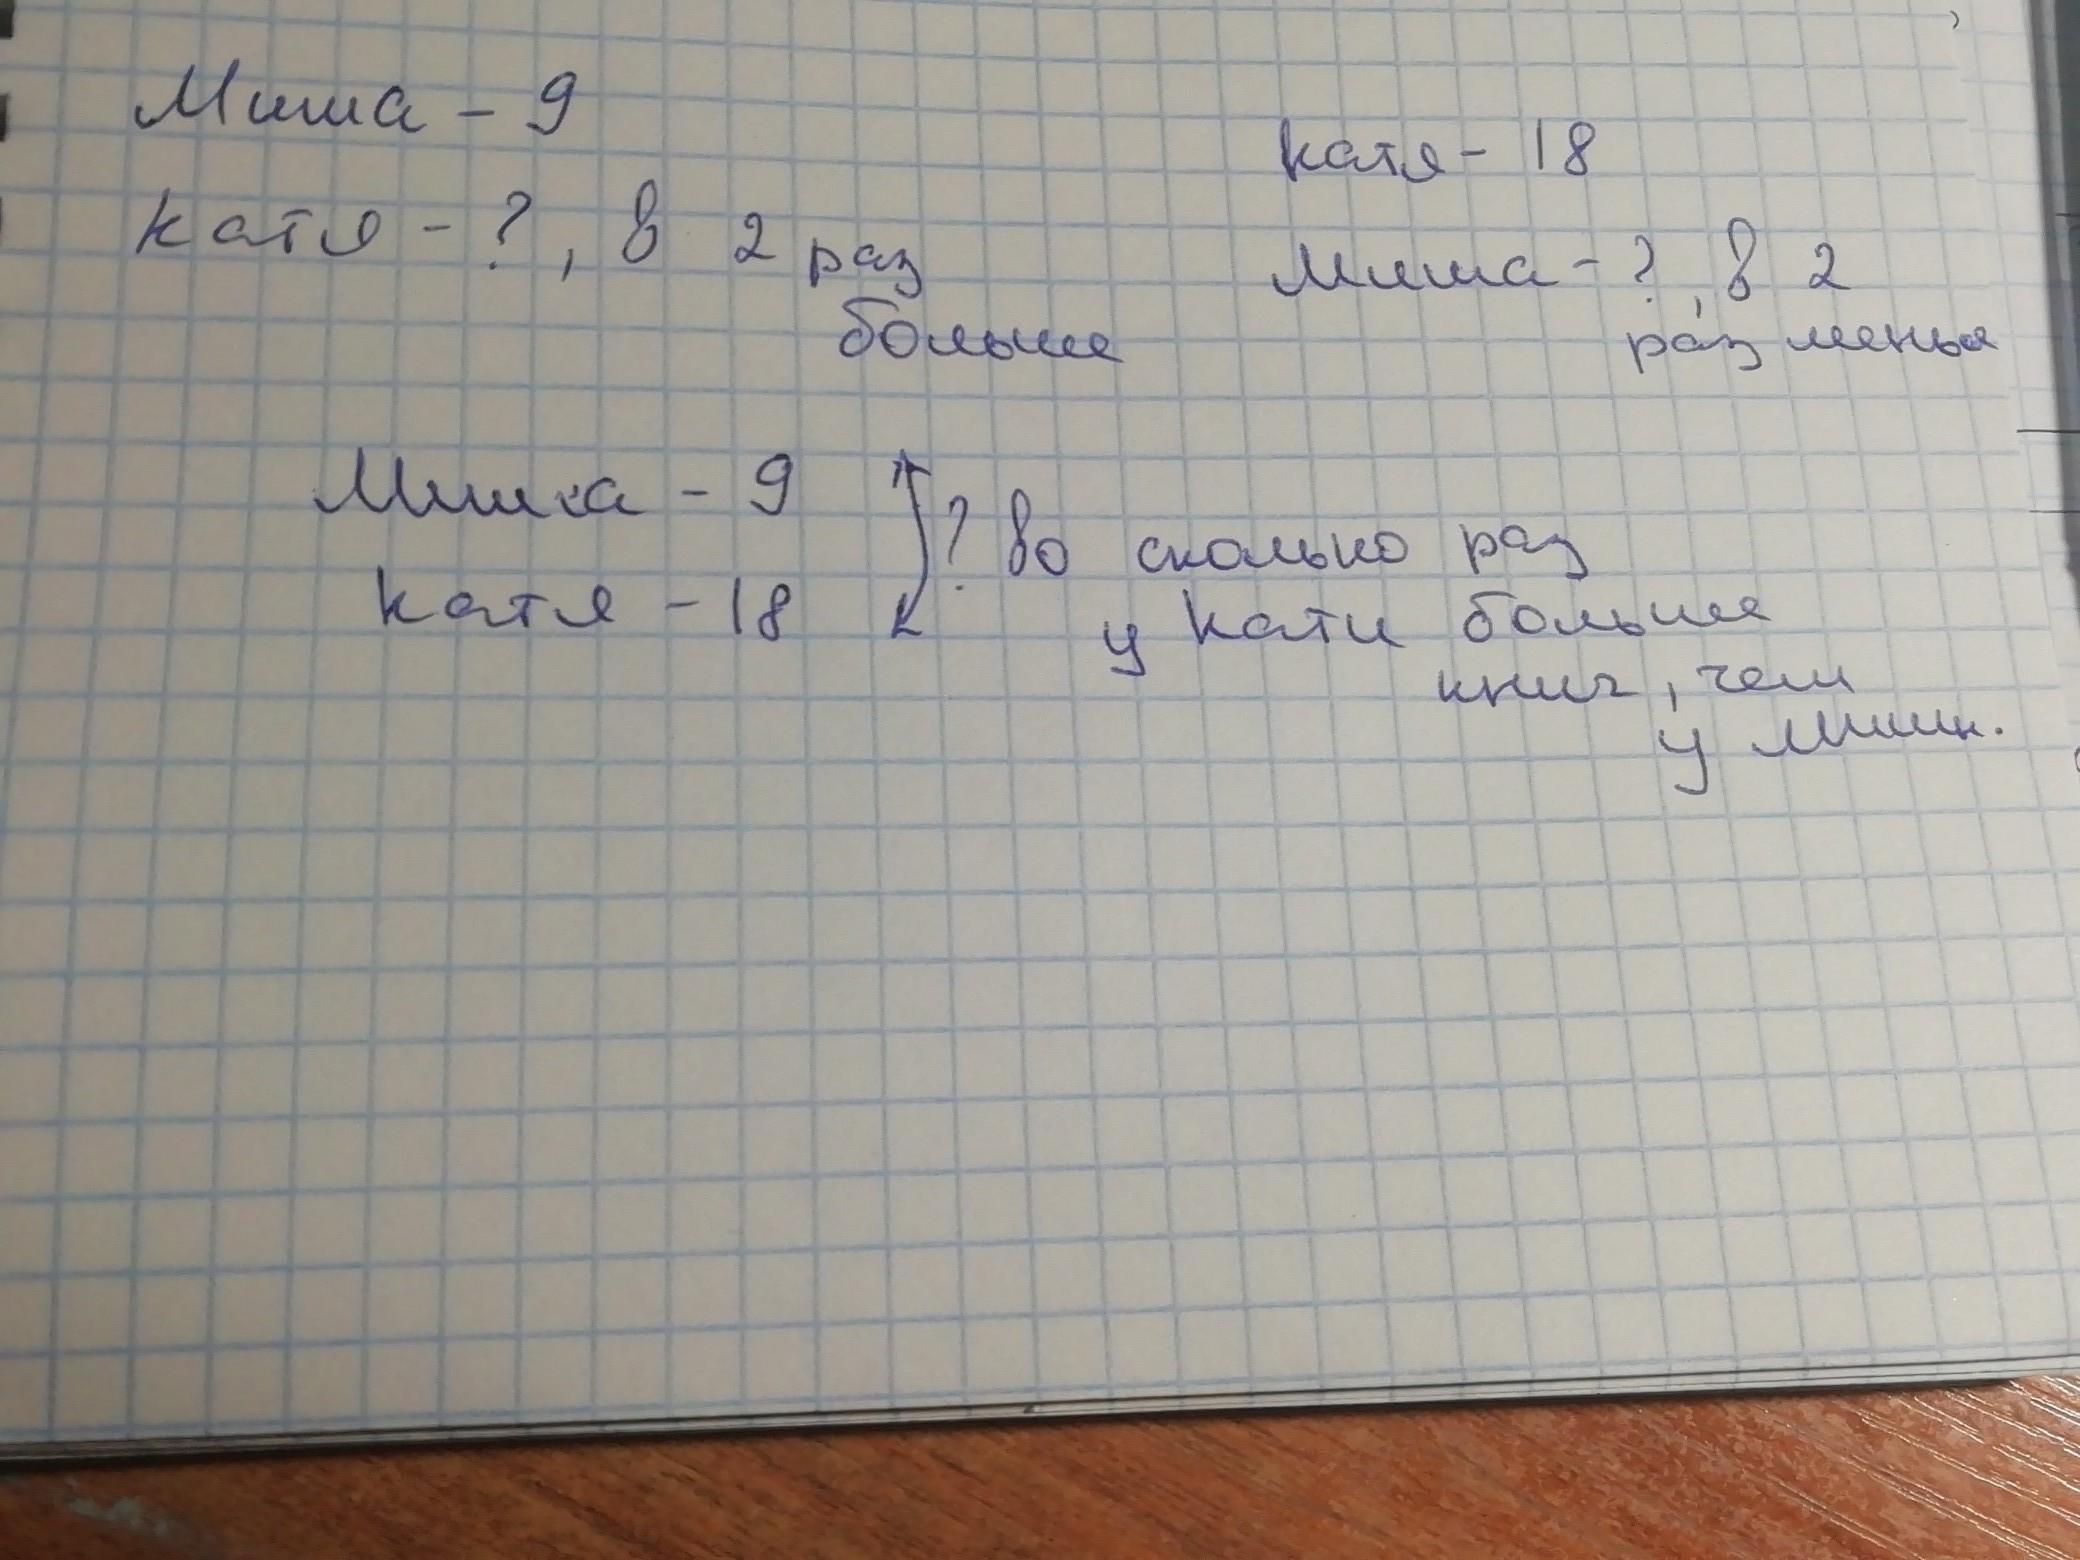 Миша - 9
Катя - ?, в 2 раз
больше
Катя - 18
Миша - ?, в 2
раз меньше
Миша - 9
Катя - 18
? во сколько раз
у Кати больше
книг, чем
у Миши.